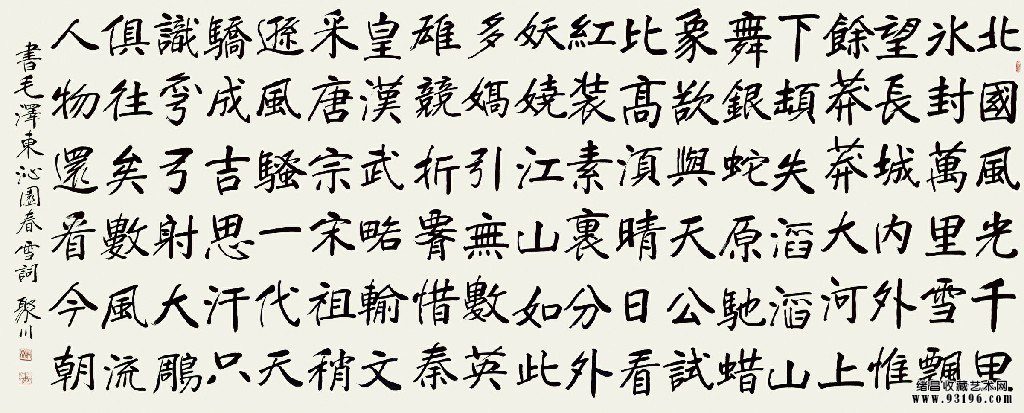 北國風光千里
冰封萬里雪飄
望長城内外惟
餘莽莽大河上
下頓失滔滔山
舞銀蛇原馳蜡
象欲與天公試
比髙須晴日看
紅装素裹分外
妖嬈江山如此
多嬌引無數英
雄競折腰惜秦
皇漢武略輸文
采唐宗宋祖稍
遜風騷一代天
驕成吉思汗只
識彎弓射大鵰
俱往矣數風流
人物還看今朝
書毛澤東沁園春雪詞 聚川
绪昌收藏艺术网
www.93196.com